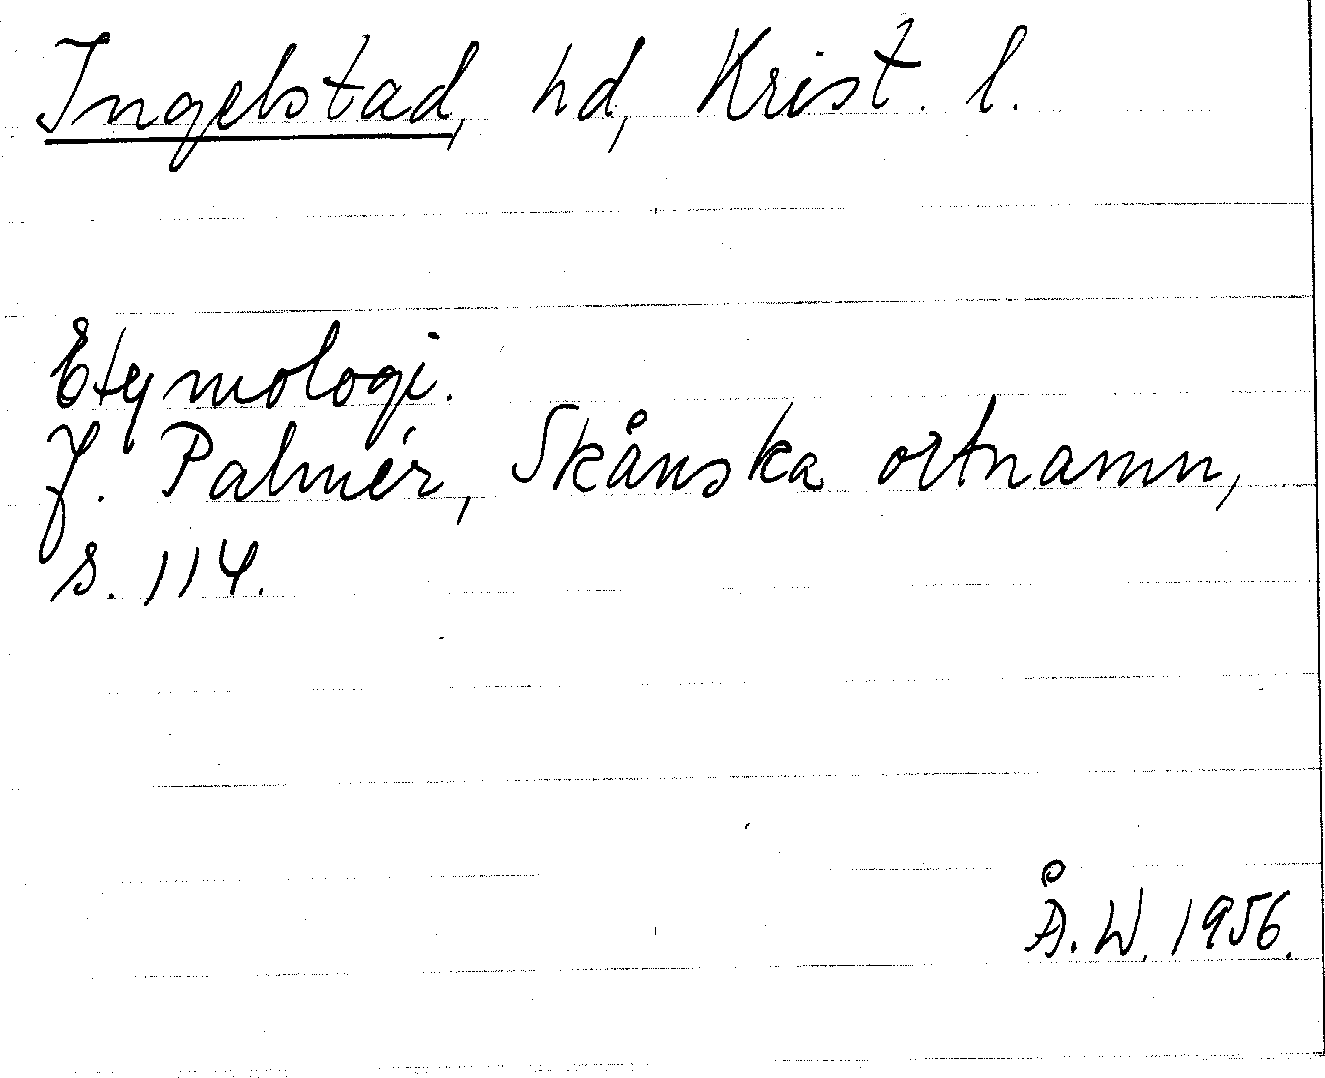 Ingelstad, hd, Krist. l.
Etymologi.
J. Palmér, Skånska ortnamn,
s. 114.
Å. W. 1956.